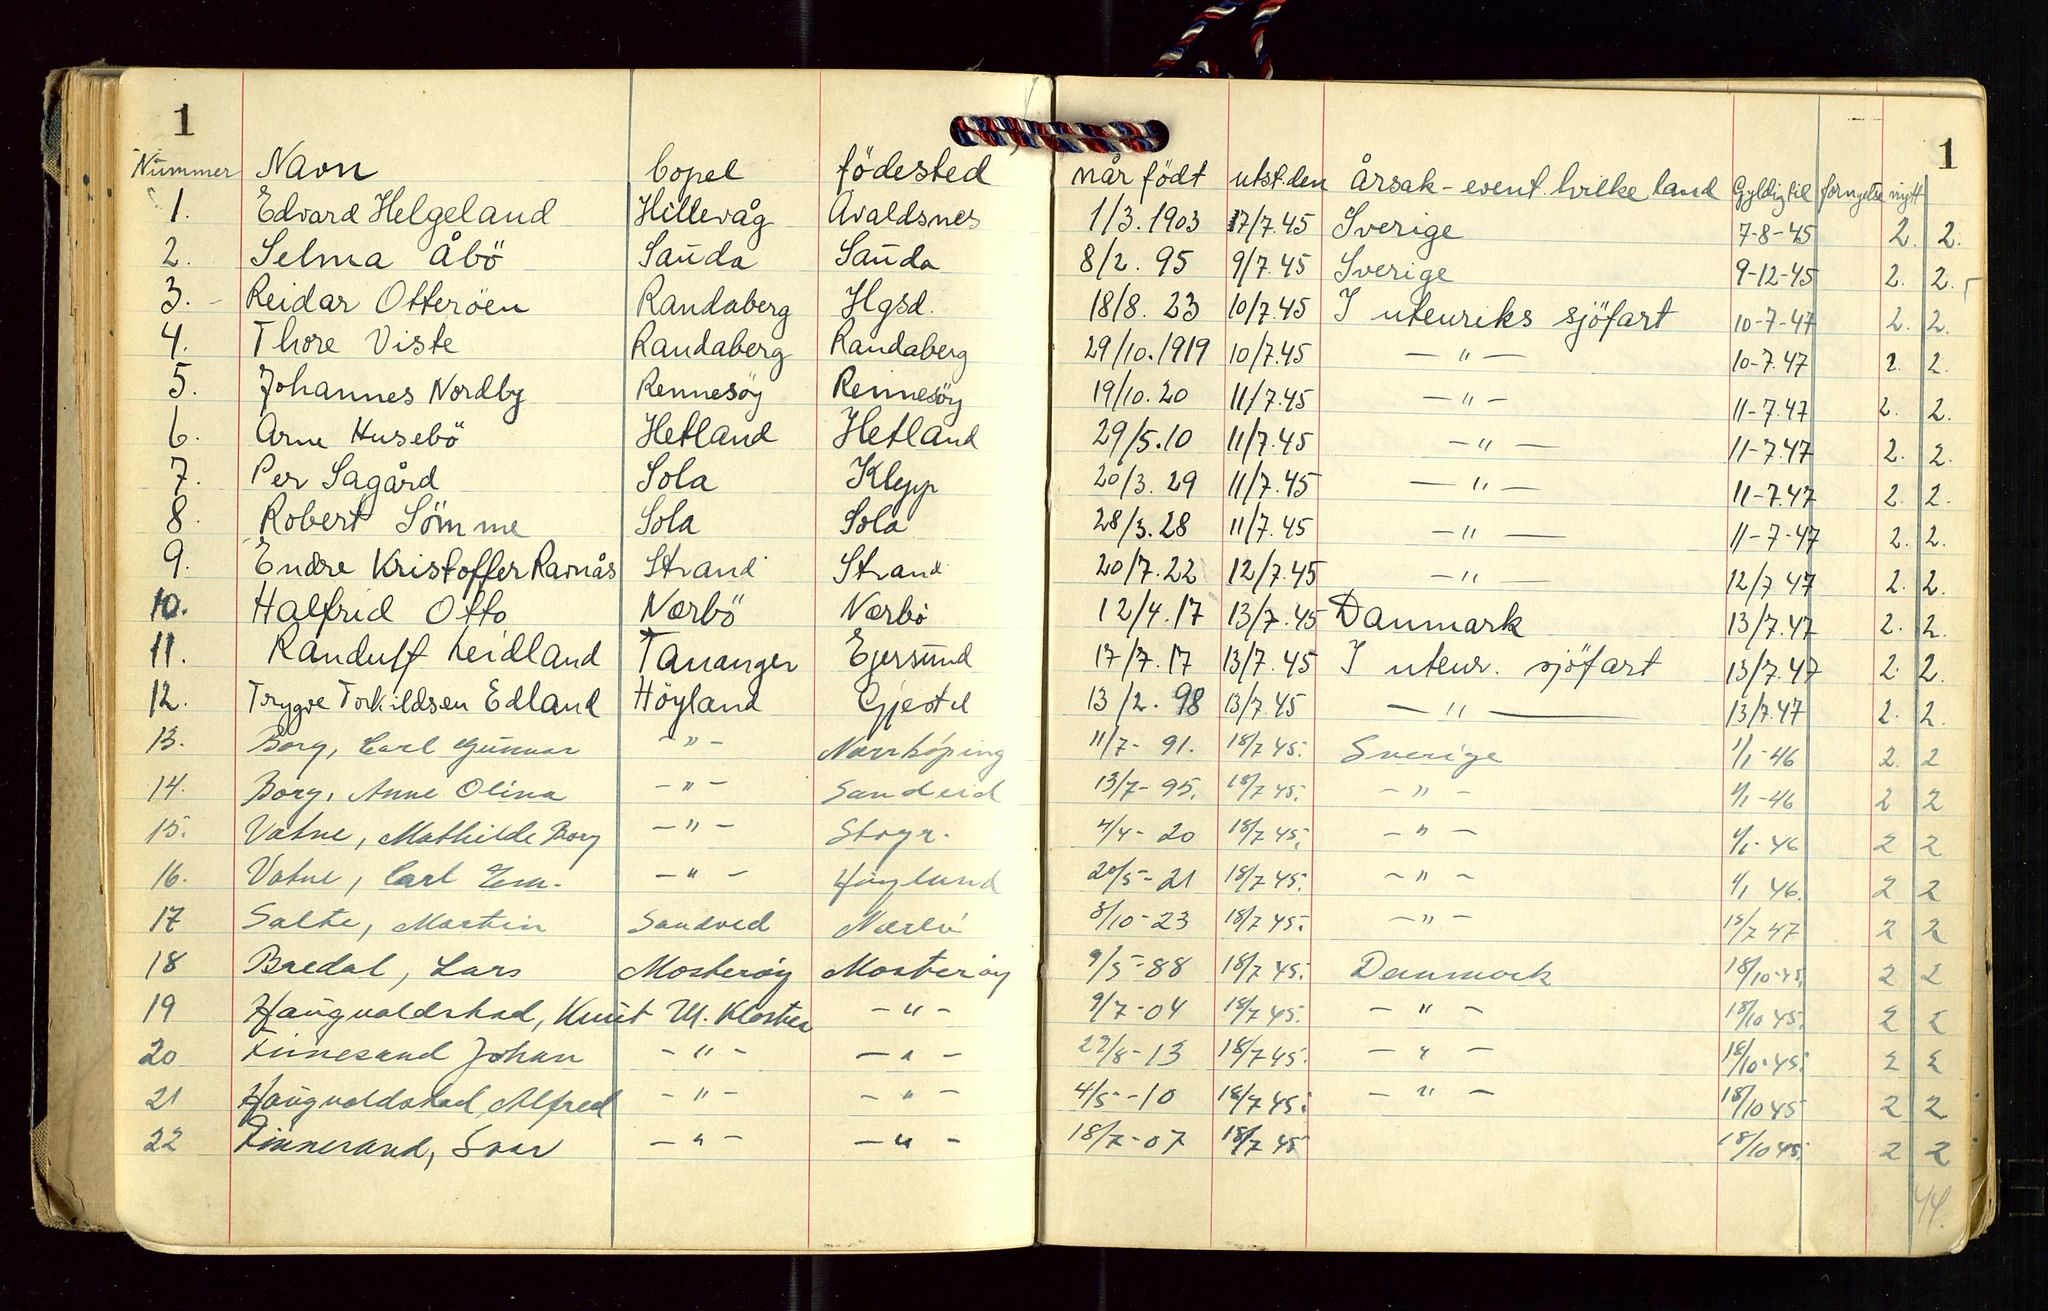 1 1
Nummer Navn bopel födested når födt utst. den Årsak - event. hvilke land Gyldig til fornyelse nytt
1. Edvard Helgeland Hillevåg Avaldsnes 1/3. 1903 17/7. 45 Sverige 7-8-45 2. 2.
2. Selma Åbö Sauda Sauda 8/2. 95 9/7. 45 Sverige 9-12-45 2. 2.
3. - Reidar Otteröen Randaberg Hgsd. 18/8. 23 10/7. 45 I utenriks sjöfart 10-7-47 2. 2.
4. Thore Viste Randaberg Randaberg 29/10. 1919 10/7. 45 — " — 10-7. 47 2. 2.
5. Johannes Nordby Rennesöy Rennesöy 19/10. 20 11/7. 45 — " — 11-7. 47 2. 2.
6. Arne Husebö Hetland Hetland 29/5. 10 11/7. 45 — " — 11-7. 47 2. 2.
7. Per Sagård Sola Klepp 20/3. 29 11/7. 45 — " — 11-7. 47 2. 2.
8. Robert Sömme Sola Sola 28/3. 28 11/7. 45 — " — 11-7-47 2. 2.
9. Endre Kristoffer Ravnås Strand Strand 20/7. 22 12/7. 45 — " — 12/7 47 2. 2.
10. Halfrid Otto Nærbö Nærbö 12/4. 17 13/7. 45 Danmark 13/7. 47 2. 2.
11. Randulf Leidland Tananger Egersund 17/7. 17 13/7. 45 I utenr. sjöfart 13/7. 47 2. 2.
12. Trygve Torkildsen Edland Höyland Gjestal 13/2. 98 13/7. 45 — " — 13/7. 47 2. 2.
13. Borg, Carl Gunnar - " - Norrköping 11/7- 91. 18/7 45. Sverige 1/1-46 2. 2
14. Borg, Anne Olina - " - Sandeid 13/7- 95. 18/7 45. - " - 1/1-46 2 2
15. Vatne, Mathilde Borg - " - 4/4- 20 18/7 45. - " - 1/1-46 2 2
16. Vatne, Carl Em. - " - Höyland 20/5- 21 18/7 45. - " - 1/1 46. 2 2
17 Salte, Martin Sandved Nærbö 3/10- 23 18/7 45. - " - 18/7 47 2 2
18 Bredal, Lars Mosteröy Mosteröy 9/5- 88 18/7 45. Danmark 18/10-45. 2 2
19 Haugvaldstad, Knut M. Kloster - " - 9/7-04 18/7 45. - " - 18/10 45. 2 2
20 Finnesand Johan - " - - " - 29/8-13 18/7 45. - " - 18/10-45. 2 2
21 Haugvaldstad Alfred - " - - " - 4/5-10 18/7 45. - " - 18/10 45 2 2
22 Finnesand, Svar - " - - " - 18/7-07 18/7 45 18/10 45. 2 2
44.